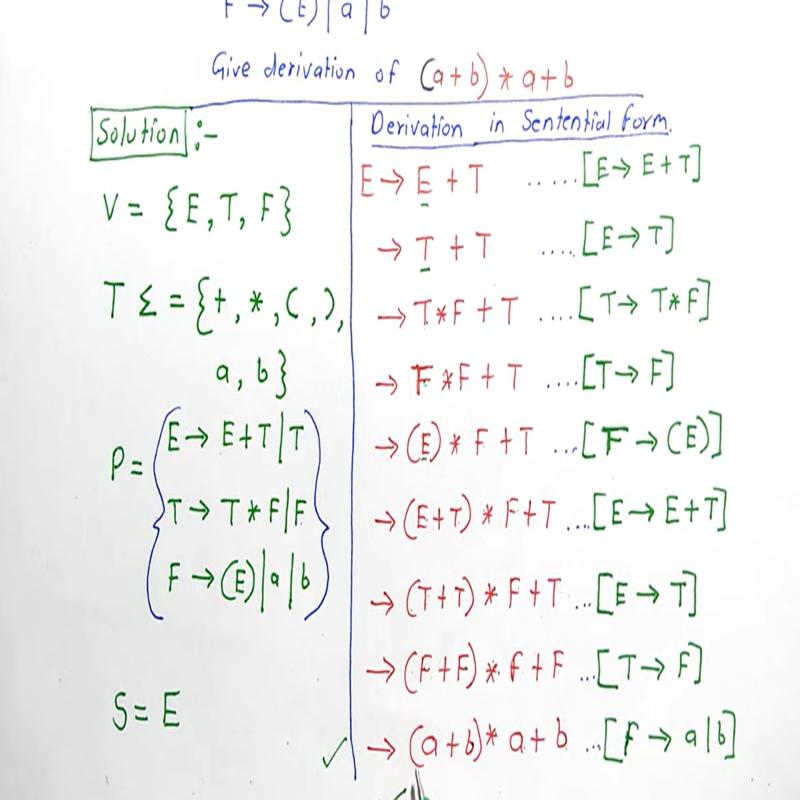 F → (E) | a | b
Give derivation of (a+b) * a+b
Solution :-
V = {E, T, F}
T Σ = {+, *, (, ),
a, b}
P =
E → E+T | T
T → T * F | F
F → (E) | a | b
S = E
Derivation in Sentential form.
E → E + T ...... [E → E + T]
→ T + T .... [E → T]
→ T*F + T .... [T → T*F]
→ F *F + T .... [T → F]
→ (E) * F + T ... [F → (E)]
→ (E+T) * F+T ... [E → E+T]
→ (T+T) * F+T ... [E → T]
→ (F+F) * f + F ... [T → F]
✓ → (a+b)* a+b ... [F → a|b]